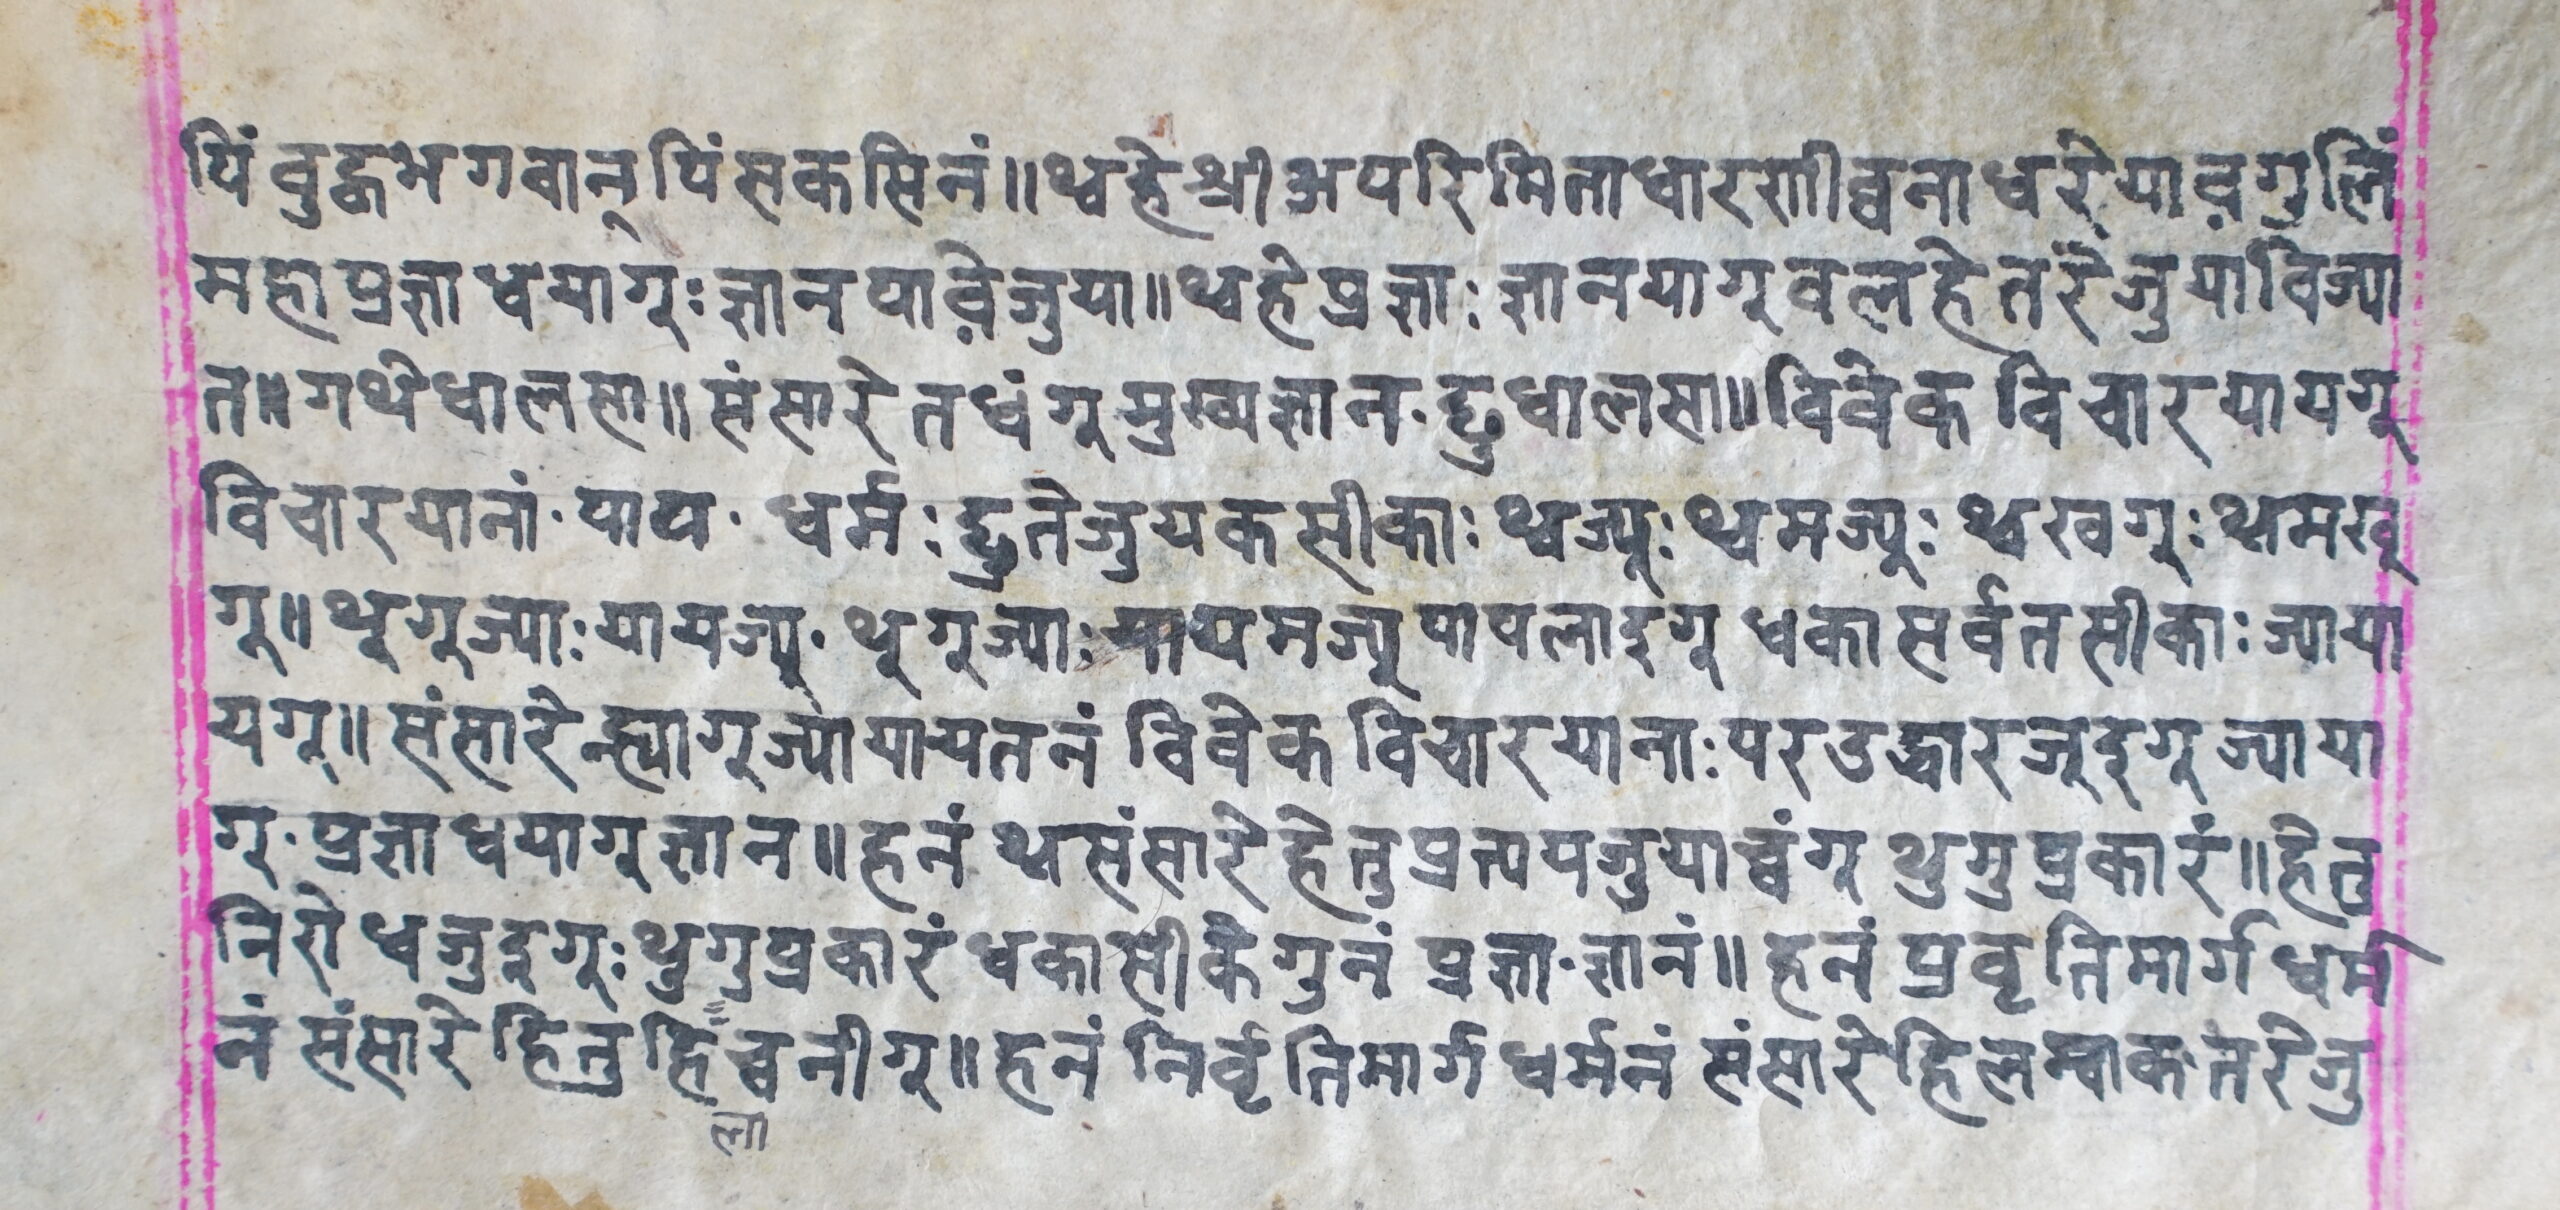 पिं बुद्धभगवान् पिं सकसिनं॥ थ्वहे श्री अपरिमिताधारणी ब्वनाधरेयाव़गुलिं
महाप्रज्ञाधयागूः ज्ञानयाव़ेजुया॥ थ्वहे प्रज्ञाः ज्ञानयागू वलहे तरेंजुयाविज्या
त॥ गथेधालसा॥ संसारे तधंगू मुख्यज्ञान· छुधालसा॥ विवेक विचारयायगू
विचारयानां· पाप· धर्मः छुतेजुयकसीकाः थ्वज्यूः थ्वमज्यूः थ्वखवगूः थ्वमखु
गू॥ थूगूज्याः यायज्यू· थूगूज्याः यायमज्यू पापलाइगू धका सर्वतसीकाः ज्याया
यगू॥ संसारे न्ह्यागूज्यायायतनं विवेक विचारयानाः परउद्धारजूइगू ज्याया
गू· प्रज्ञाधयागू ज्ञान॥ हनं थ्वसंसारे हेतुप्रत्ययजुयाच्वंगू थुगुप्रकारं॥ हेतु
निरोधजुइगूः थुगुप्रकारं धकासीकेगुनं प्रज्ञा·ज्ञानं॥ हनं प्रवृतिमार्ग धर्म
नं संसारे हितुहिलाच्वनीगू॥ हनं निर्वृतिमार्ग धर्मनं संसारे हिलम्वाक· तरेजु